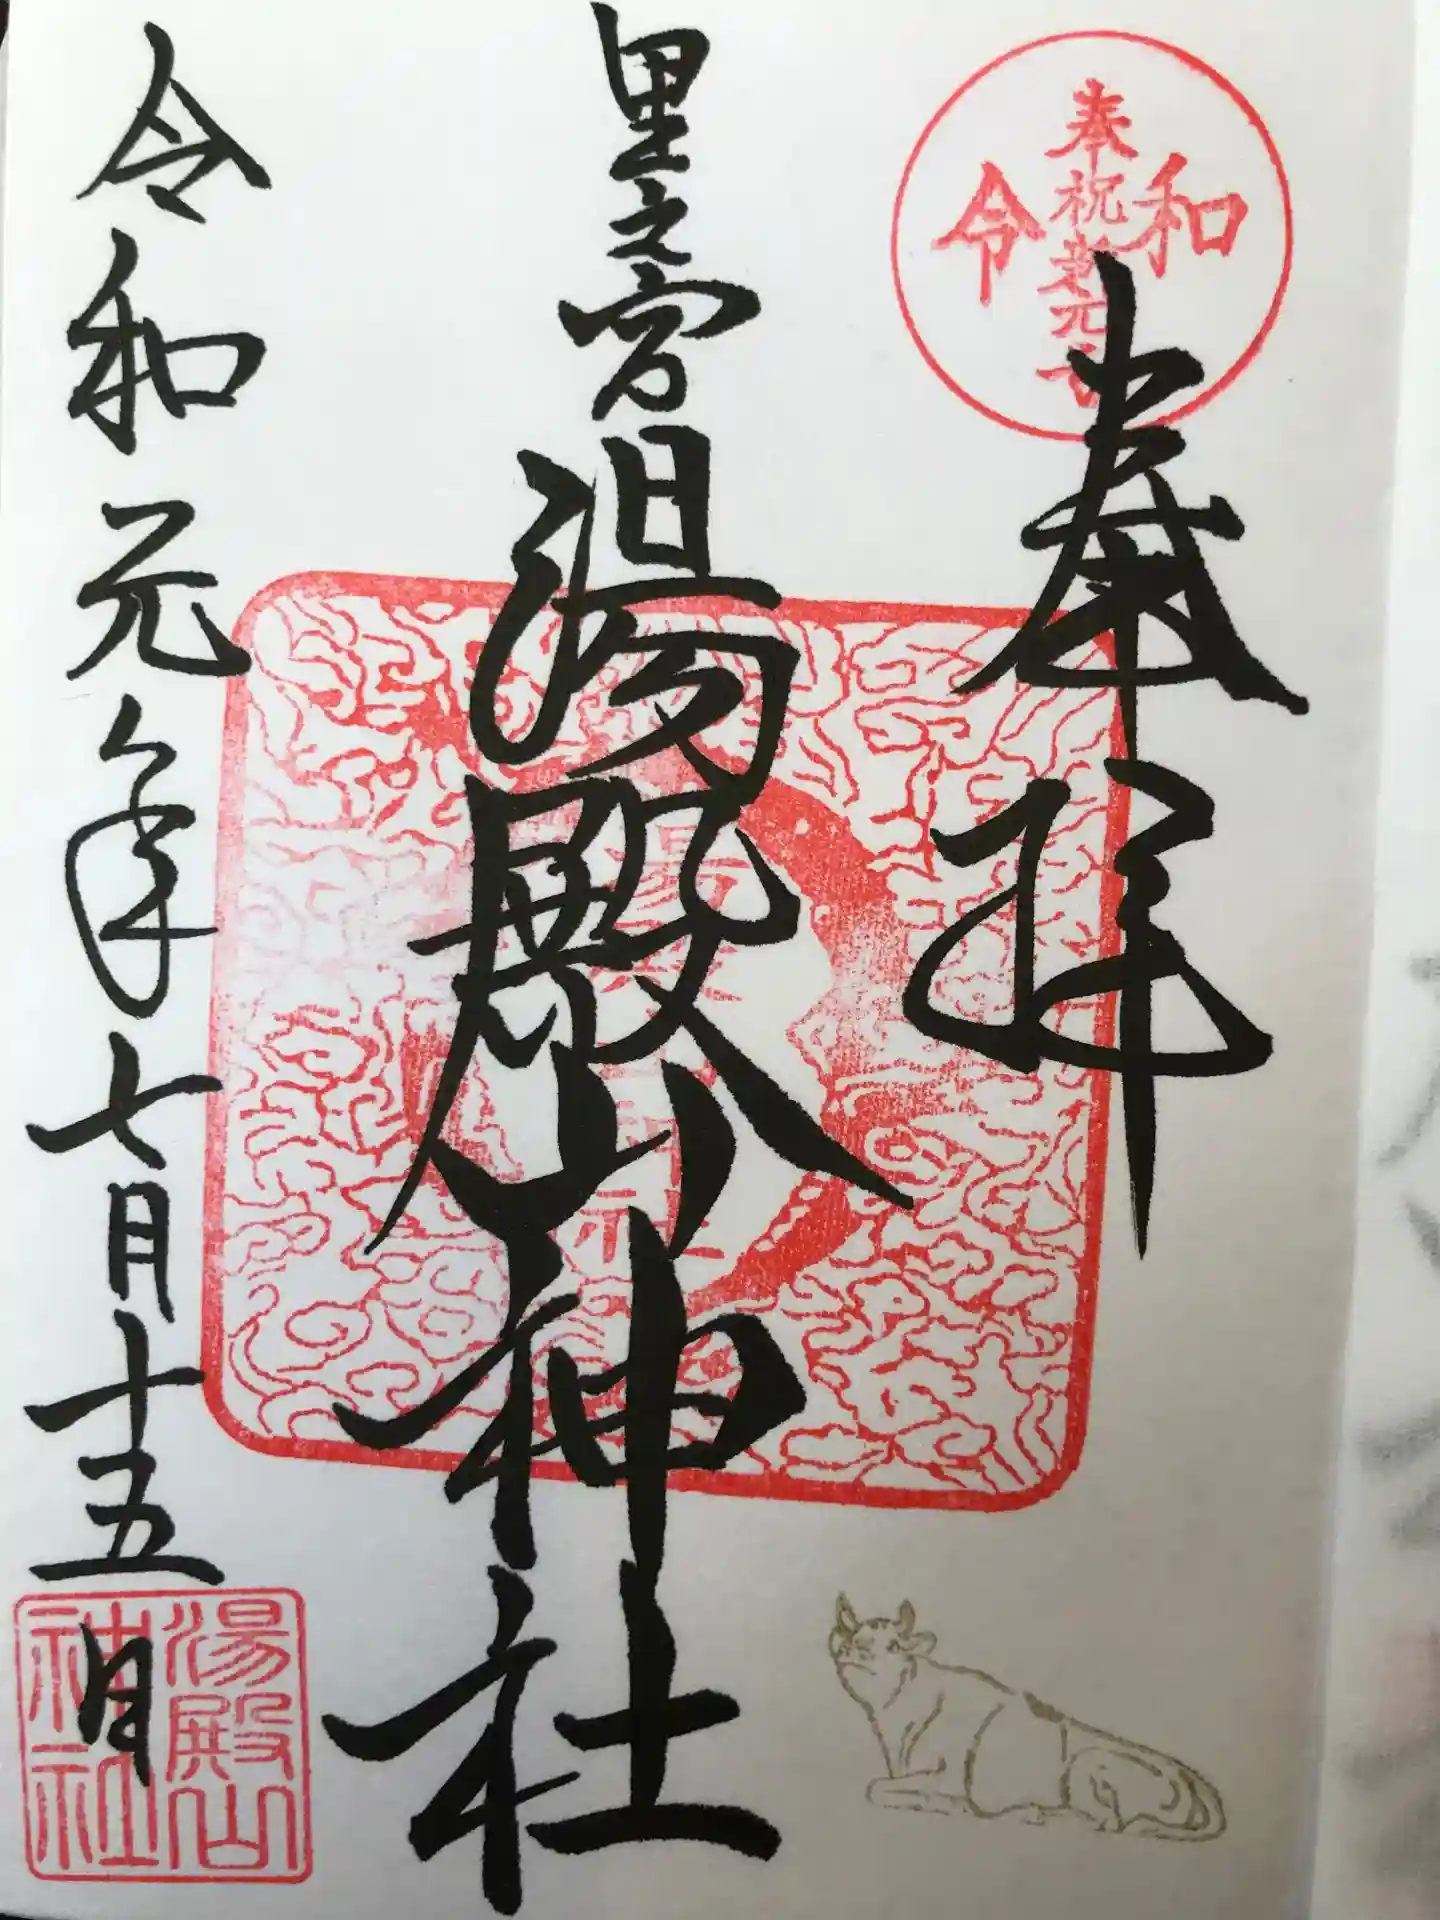 奉祝
改元
令和
奉拝
里之宮
湯殿山神社
令和元年七月十五日
湯殿山
神社